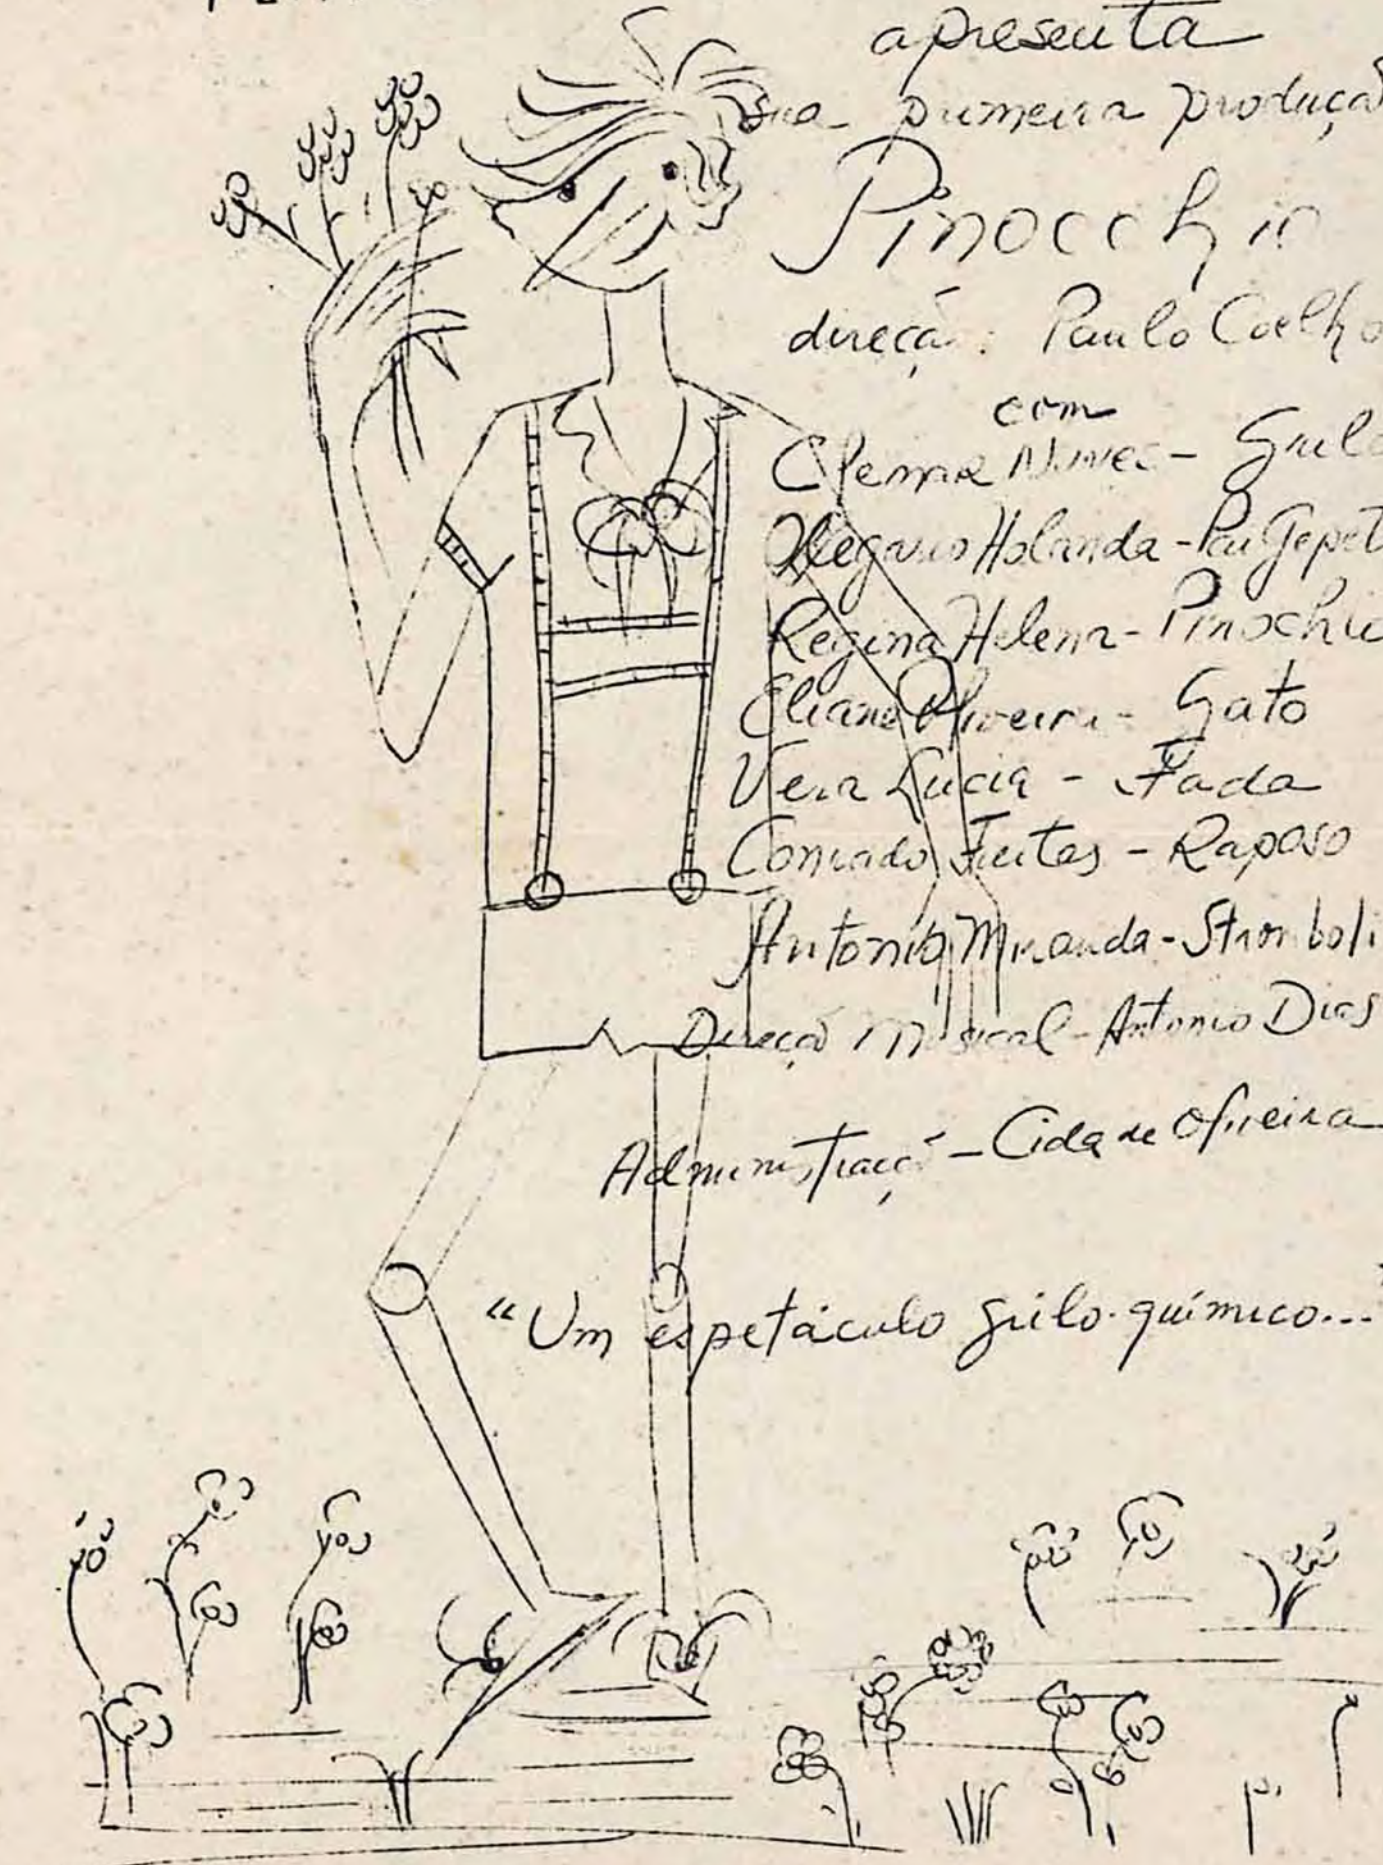 apresenta
sua primeira produçã
Pinocchio
direçã: Paulo Coelho
com
Clemar Nunes - Grilo
Olegario Holanda - Pai Gepet
Regina Helena - Pinochio
Eliane Oliveira - Gato
Vera Lucia - Fada
Conrado Freitas - Raposo
Antonio Miranda - Stromboli
Direçã Musical - Antonio Dias
Administraçã - Cida de Oliveira
"Um espetáculo grilo-químico...